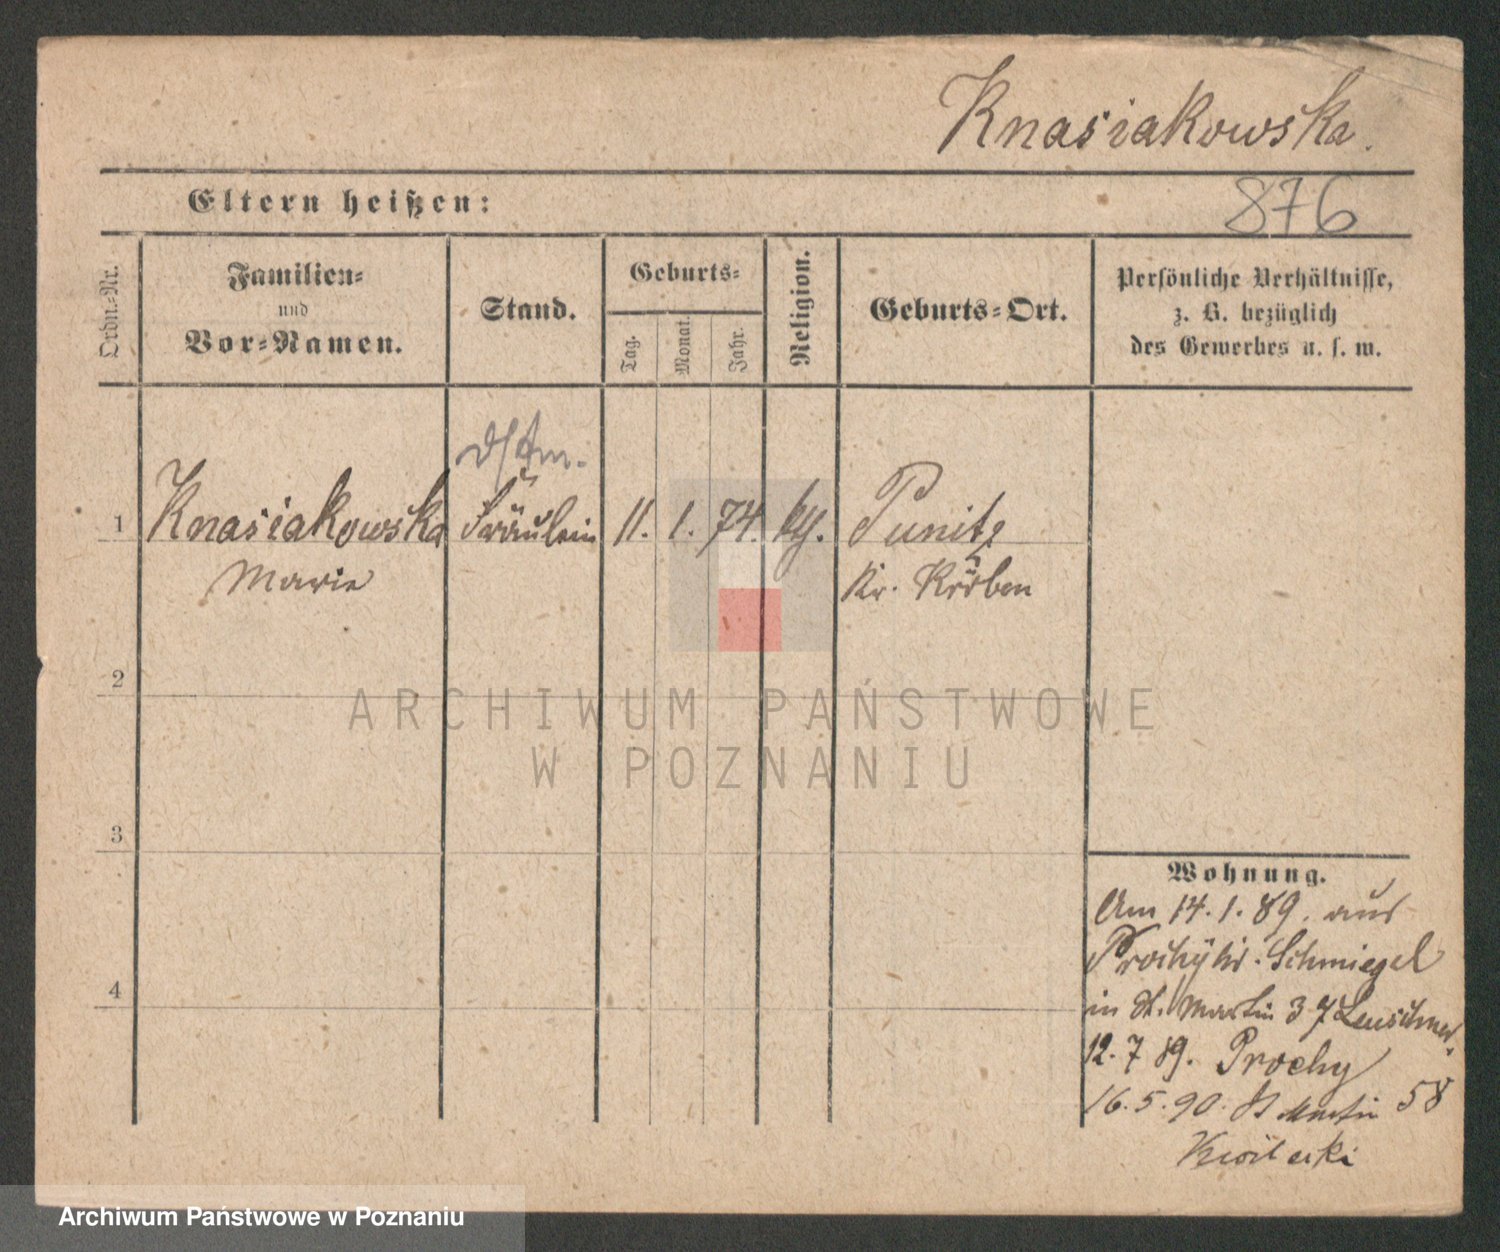 Knasiakowska.
Eltern heißen:
876
Ordn.-Nr.
Familien-
und
Vor-Namen.
Stand.
Geburts-
Tag.
Monat.
Jahr.
Religion.
Geburts-Ort.
Persönliche Verhältnisse,
z. B. bezüglich
des Gewerbes u. s. w.
1 Knasiakowska Fräulein 11. 1. 74. kth. Punitz
Marie Kr. Kröben
2
3
4
Wohnung.
Am 14.1.89. aus
Schmiegel
in St. Martin 37 Leuschner.
12.7 89. Prochy
16.5.90. St Martin 58
ARCHIWUM PAŃSTWOWE
W POZNANIU
Archiwum Państwowe w Poznaniu